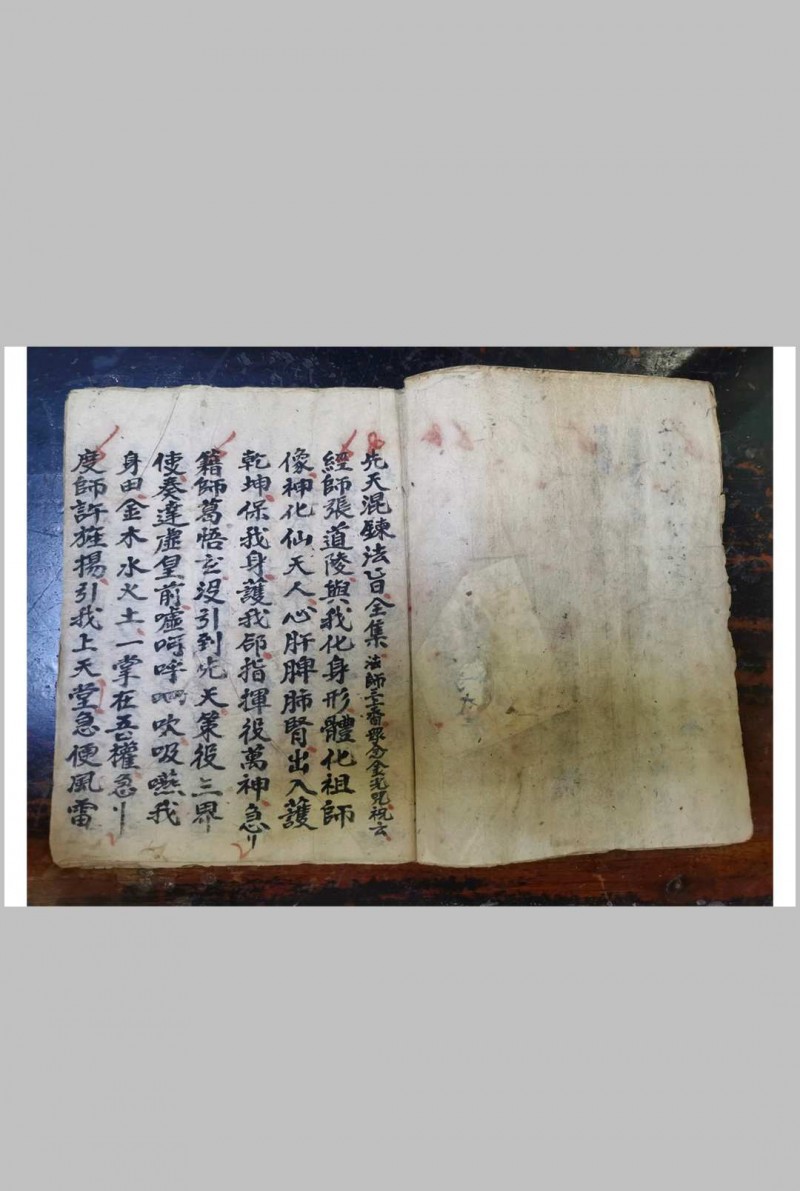 先天混鍊法旨全集 法師三上香默念金光咒祝云
經師張道陵與我化身形體化祖師
像神化仙天人心肝脾肺腎出入護
乾坤保我身護我部指揮役萬神急〃
籍師葛悟玄没引到先天策役三界
使奏達虛皇前噓呵呼呬吹吸嘻我
身田金木水火土一掌在五權急〃
度師許旌揚引我上天堂急便風雷